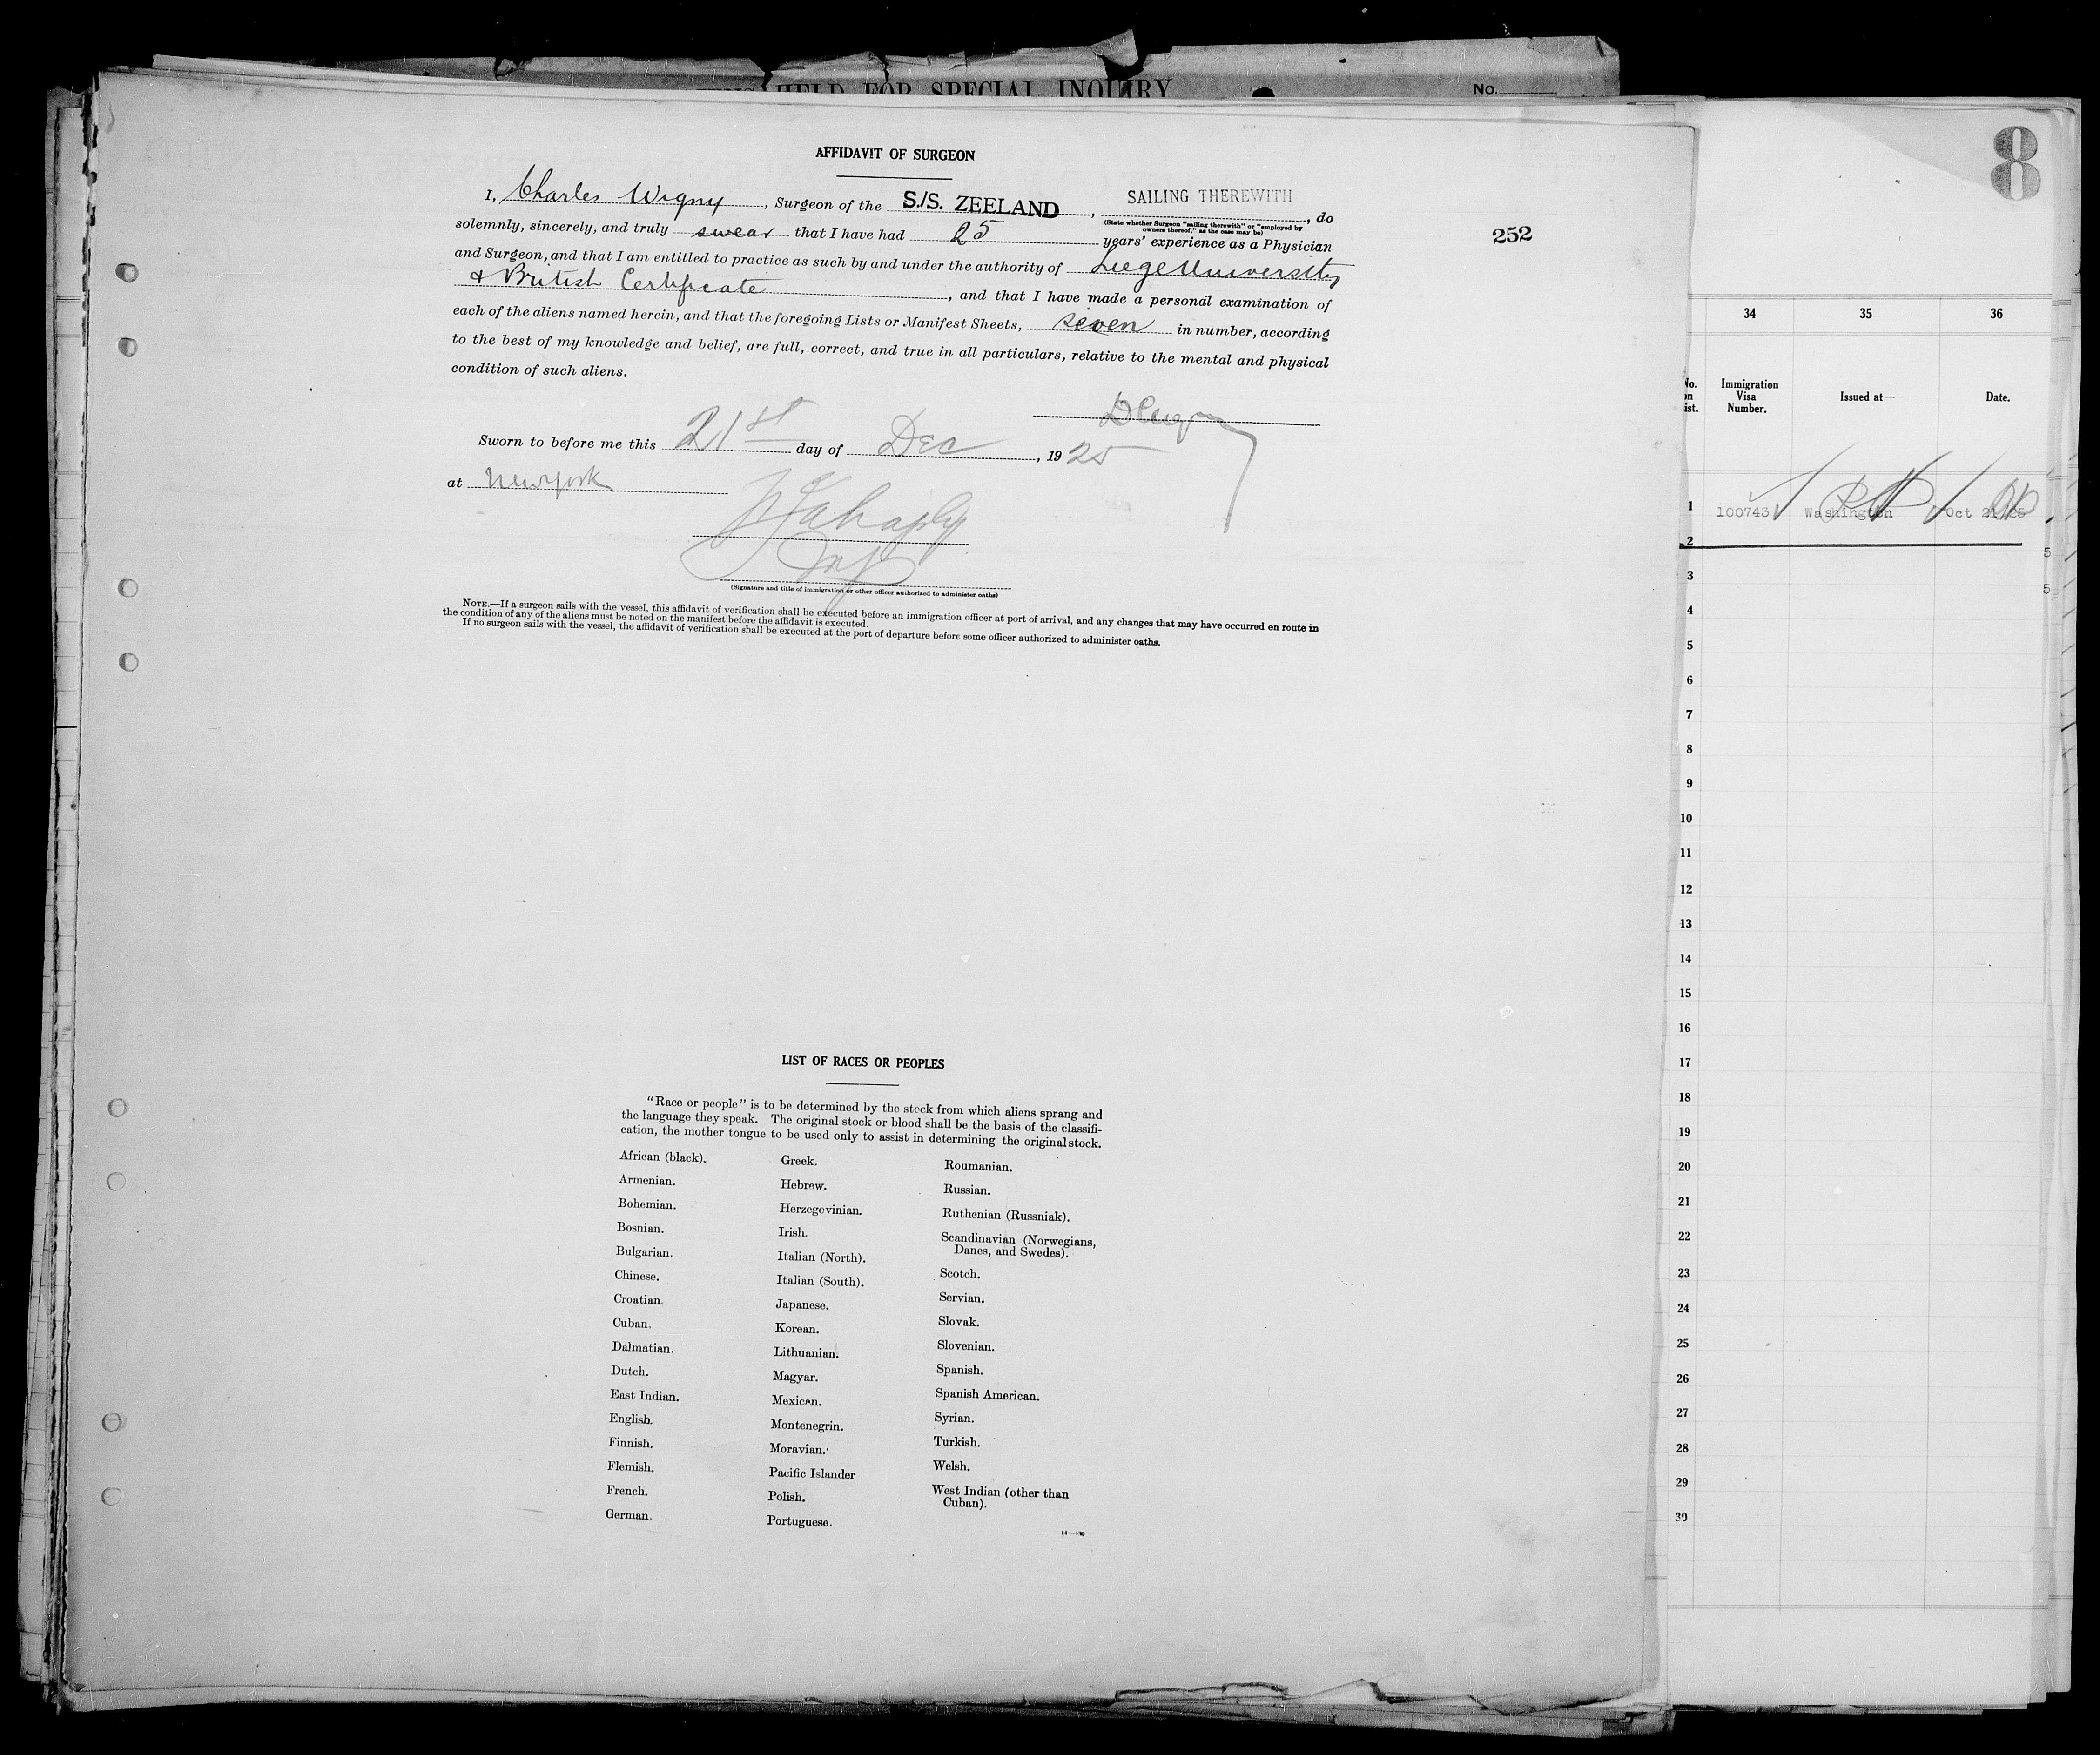 HELD FOR SPECIAL INQUIRY
No.
8
AFFIDAVIT OF SURGEON
I, Charles Wigny, Surgeon of the S./S. ZEELAND, SAILING THEREWITH, do
(State whether Surgeon "sailing therewith" or "employed by
owners thereof," as the case may be)
252
solemnly, sincerely, and truly swear that I have had 25 years' experience as a Physician
and Surgeon, and that I am entitled to practice as such by and under the authority of Liege University
& British Certificate, and that I have made a personal examination of
each of the aliens named herein, and that the foregoing Lists or Manifest Sheets, seven in number, according
to the best of my knowledge and belief, are full, correct, and true in all particulars, relative to the mental and physical
condition of such aliens.
Sworn to before me this 21st day of Dec, 1925
at New York
(Signature and title of immigration or other officer authorized to administer oaths)
NOTE.—If a surgeon sails with the vessel, this affidavit of verification shall be executed before an immigration officer at port of arrival, and any changes that may have occurred en route in
the condition of any of the aliens must be noted on the manifest before the affidavit is executed.
If no surgeon sails with the vessel, the affidavit of verification shall be executed at the port of departure before some officer authorized to administer oaths.
LIST OF RACES OR PEOPLES
"Race or people" is to be determined by the stock from which aliens sprang and
the language they speak. The original stock or blood shall be the basis of the classifi-
cation, the mother tongue to be used only to assist in determining the original stock.
African (black).
Armenian.
Bohemian.
Bosnian.
Bulgarian.
Chinese.
Croatian.
Cuban.
Dalmatian.
Dutch.
East Indian.
English.
Finnish.
Flemish.
French.
German.
Greek.
Hebrew.
Herzegovinian.
Irish.
Italian (North).
Italian (South).
Japanese.
Korean.
Lithuanian.
Magyar.
Mexican.
Montenegrin.
Moravian.
Pacific Islander
Polish.
Portuguese.
Roumanian.
Russian.
Ruthenian (Russniak).
Scandinavian (Norwegians,
Danes, and Swedes).
Scotch.
Servian.
Slovak.
Slovenian.
Spanish.
Spanish American.
Syrian.
Turkish.
Welsh.
West Indian (other than
Cuban).
34 35 36
No.
on
ist.
Immigration
Visa
Number.
Issued at—
Date.
1 100743 Washington Oct 21/25
2
3
4
5
6
7
8
9
10
11
12
13
14
15
16
17
18
19
20
21
22
23
24
25
26
27
28
29
30